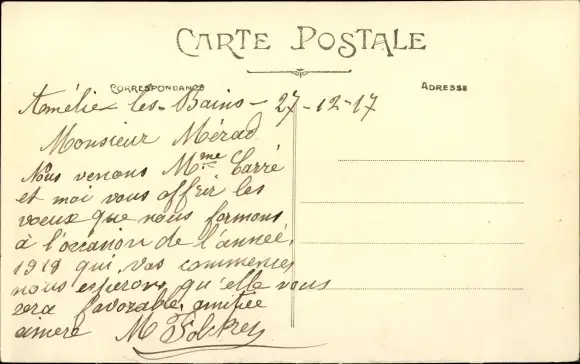 CARTE POSTALE
CORRESPONDANCE
ADRESSE
Amélie-les-Bains - 27-12-17
Monsieur Mérad
Nous venons Mme Carré
et moi vous offrir les
voeux que nous formons
à l'occasion de l'année
1918 qui vas commencer
nous esperons qu'elle vous
sera favorable, amitié
sincere M